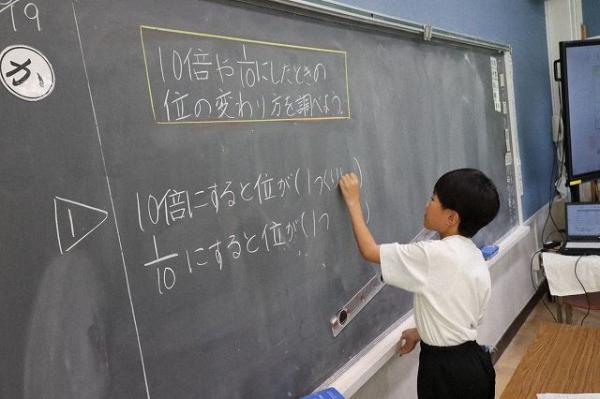 か
10倍や1/10にしたときの
位の変わり方を調べよう。
1
10倍にすると位が(1つくり)
1/10にすると位が(1つ )